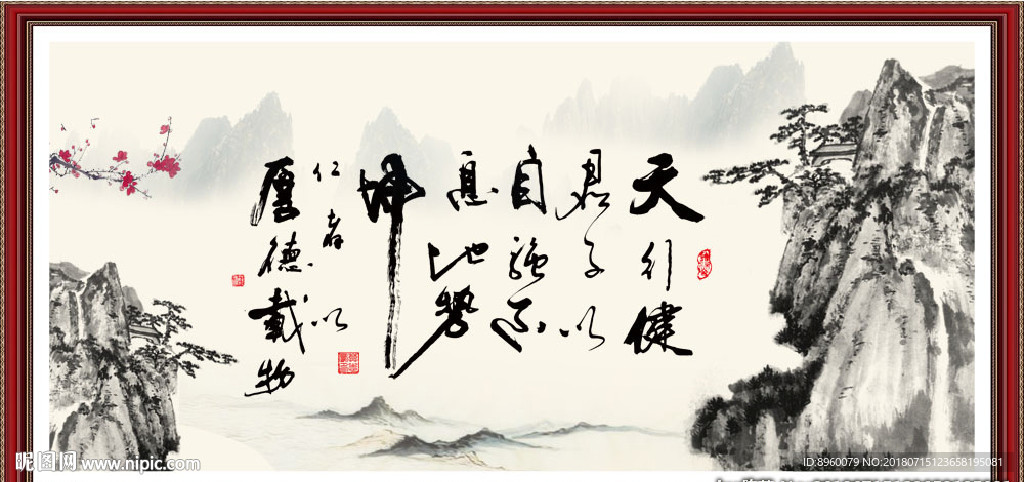 天行健
君子以
自強不
息地勢
坤
仁者以
厚德載物
昵图网 www.nipic.com
ID:8960079 NO:20180715123658195081